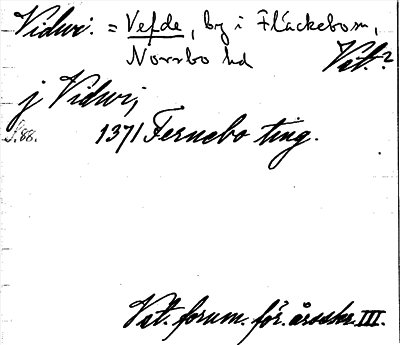 Vidwi. = Vefde, by i Fläckebom,
Norrbo hd Vstm.?
j Vidwi,
S. 88. 1371 Fernebo ting.
Väst. fornm. för. årsskr. III.